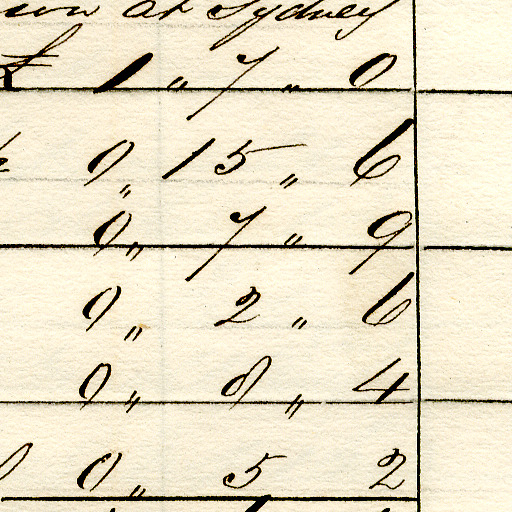 at Sydney
£ 1 " 7 " 0
0 " 15 " 6
0 " 7 " 9
0 " 2 " 6
0 " 8 " 4
0 " 5 2